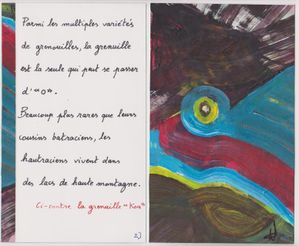 Parmi les multiples variétés
de grenouilles, la grenuille
est la seule qui peut se passer
d'"O".
Beaucoup plus rares que leurs
cousins batraciens, les
hautraciens vivent dans
des lacs de haute montagne.
Ci-contre la grenuille "Kiwi"